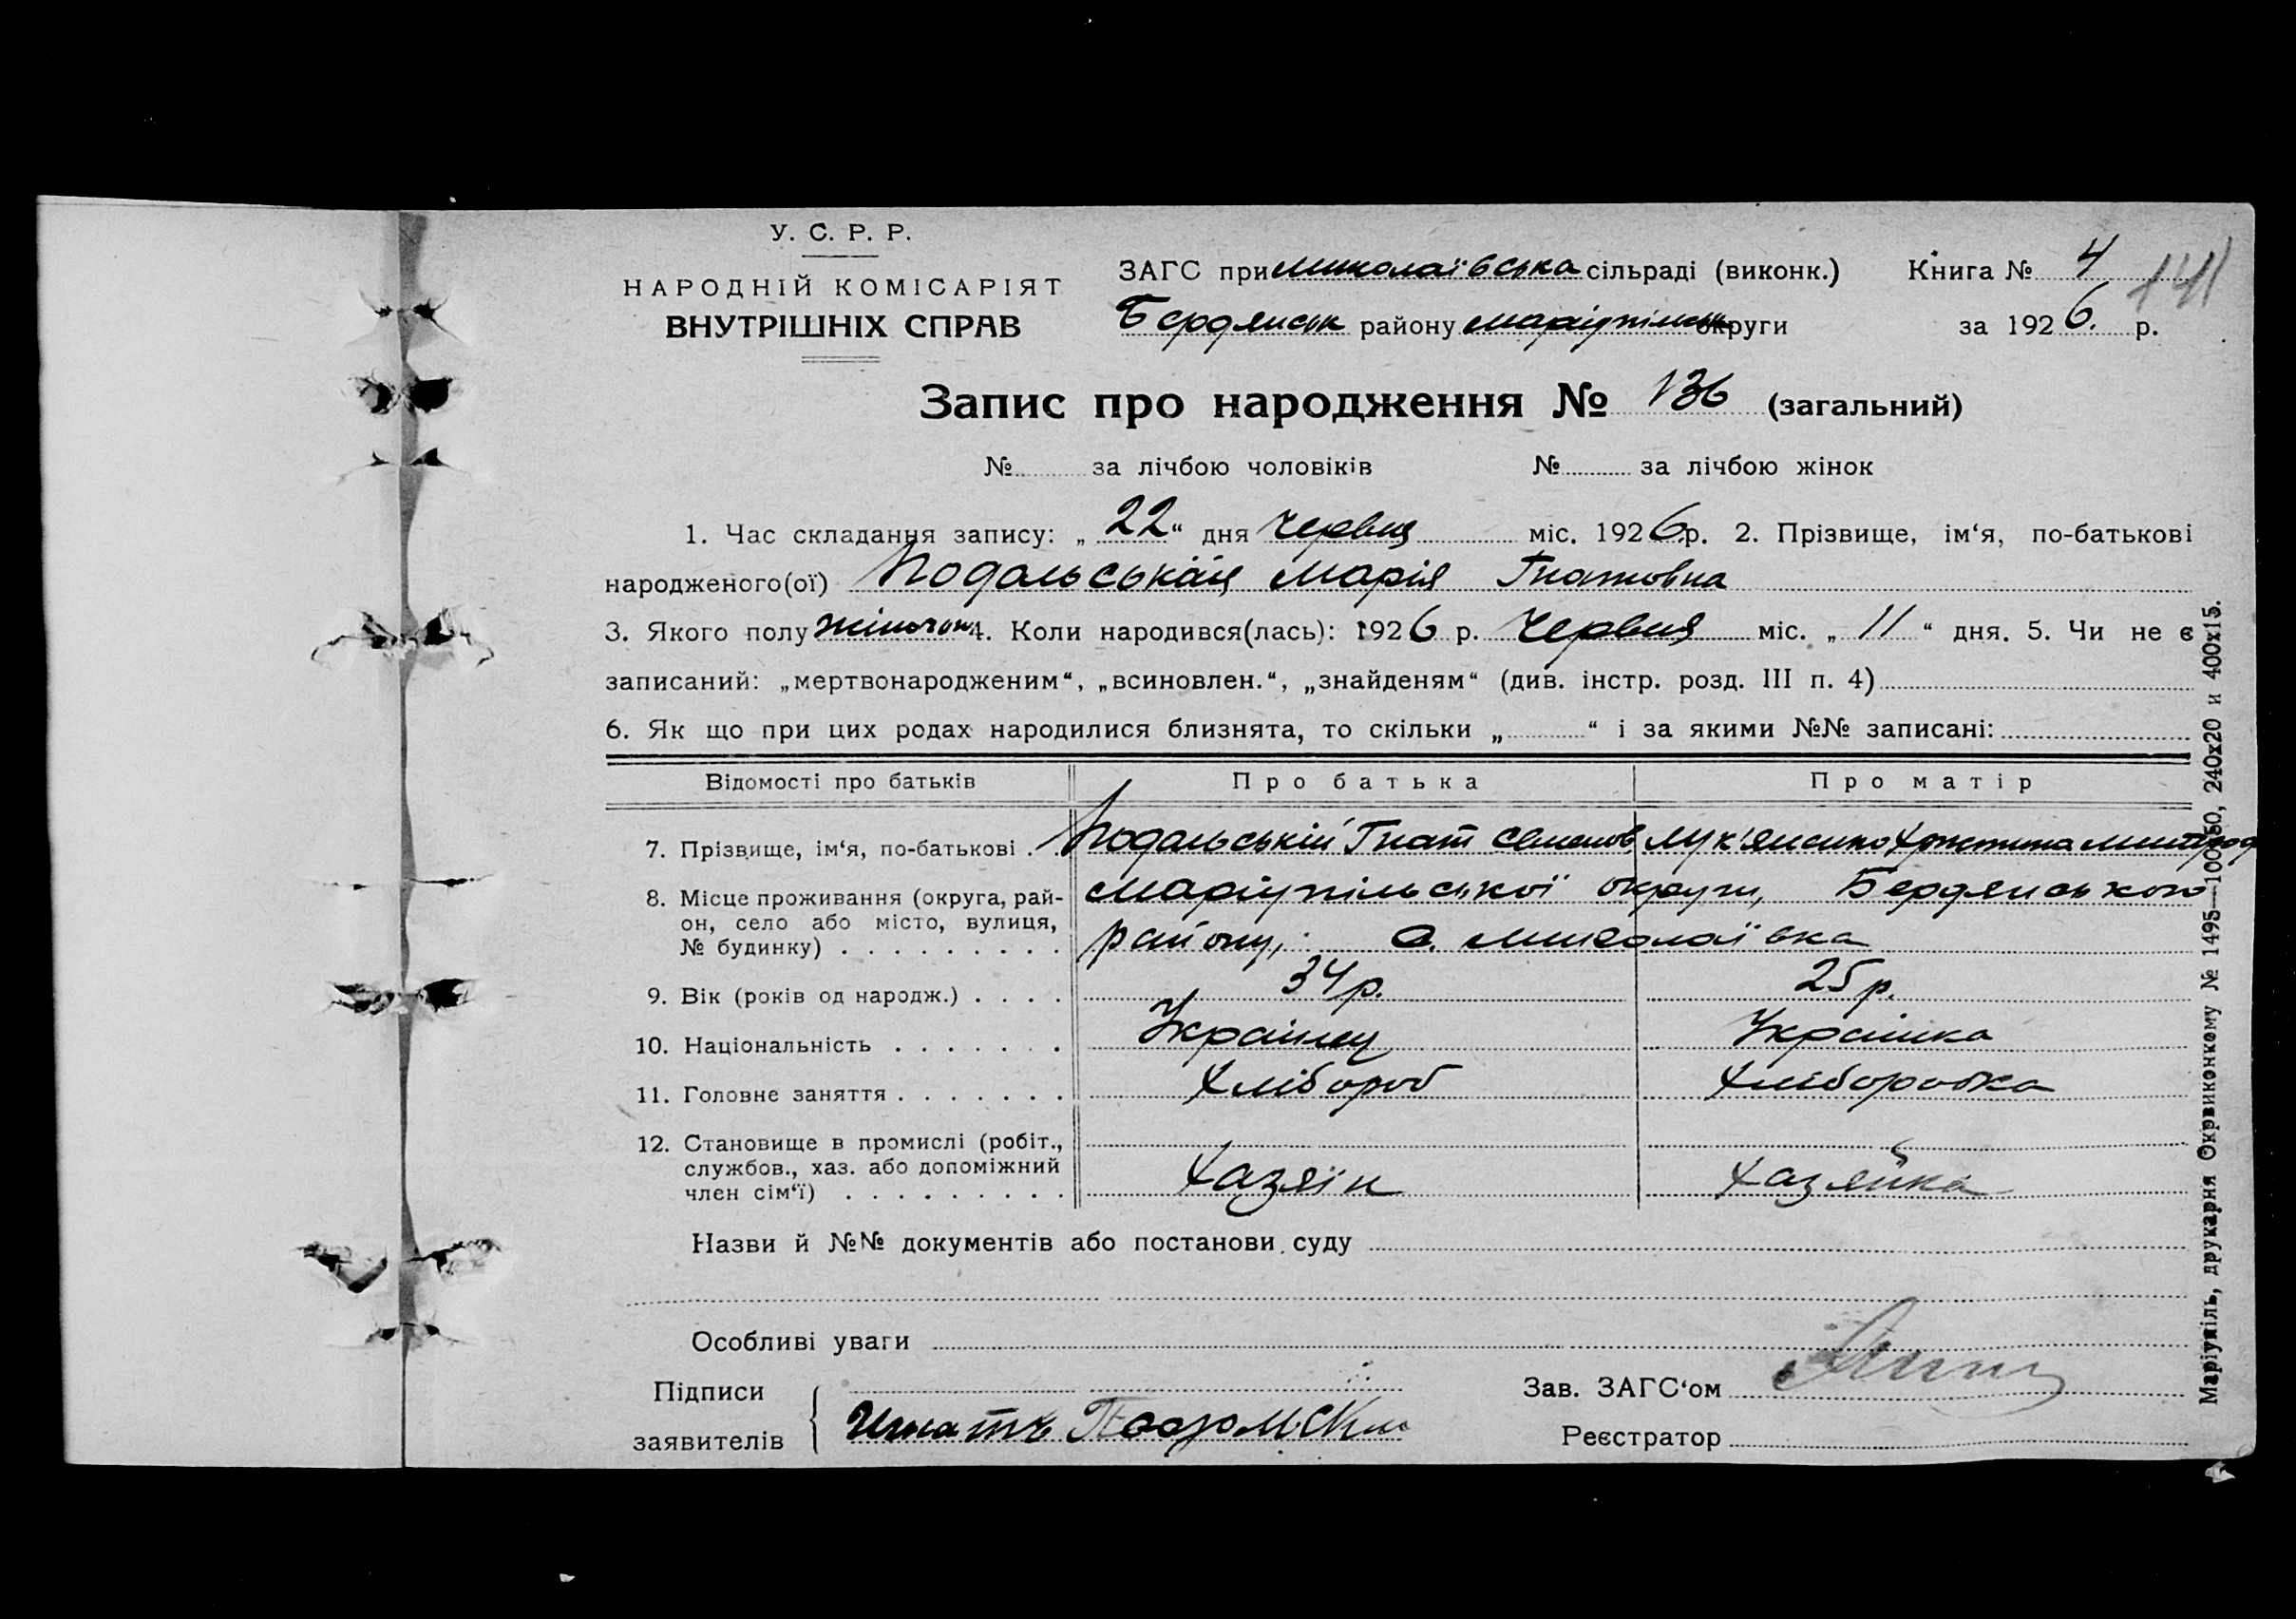 У. С. Р. Р.
НАРОДНІЙ КОМІСАРІЯТ
ВНУТРІШНІХ СПРАВ
ЗАГС при Миколаївська сільраді (виконк.) Книга № 4 141
Бердянськ району Маріупільськ округи за 1926. р.
Запис про народження № 136 (загальний)
№ за лічбою чоловіків № за лічбою жінок
1. Час складання запису: „22“ дня Червця міс. 1926 р. 2. Прізвище, ім‘я, по-батькові
народженого(ої) Подольськая Марія Гнатовна
3. Якого полу жіночого 4. Коли народився(лась): 1926 р. Червця міс. „11“ дня. 5. Чи не є
записаний: „мертвонародженим“, „всиновлен.“, „знайденям“ (див. інстр. розд. III п. 4)
6. Як що при цих родах народилися близнята, то скільки „ “ і за якими №№ записані:
Відомості про батьків Про батька Про матір
7. Прізвище, ім‘я, по-батькові . . Подольській Гнат Семенов Лук'яненко Христина Митрод
8. Місце проживання (округа, рай-
он, село або місто, вулиця,
№ будинку) . . . . . . . . .
Маріупільської округи, Бердянського
району, с. Миколаївка
9. Вік (років од народж.) . . . . 34 р. 25 р.
10. Національність . . . . . . . Українец Українка
11. Головне заняття . . . . . . . Хлібороб Хліборобка
12. Становище в промислі (робіт.,
службов., хаз. або допоміжний
член сім‘ї) . . . . . . . . .
Хазяїн Хазяйка
Назви й №№ документів або постанови суду
Особливі уваги
Підписи
заявителів
Игнатъ
Зав. ЗАГС‘ом
Реєстратор
Маріупіль, друкарня Окрвиконкому № 1495—100х50, 240х20 и 400х15.